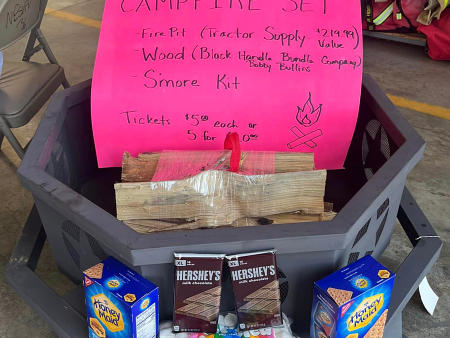 CAMPFIRE SET
- Fire Pit (Tractor Supply $219.99)
Value
- Wood (Black Handle Bundle Company)
Bobby Bullins
- S'more Kit
Tickets $5.00 each or
5 for
XL
HERSHEY'S
milk chocolate
XL
HERSHEY'S
milk chocolate
Honey
Maid
Honey
Maid